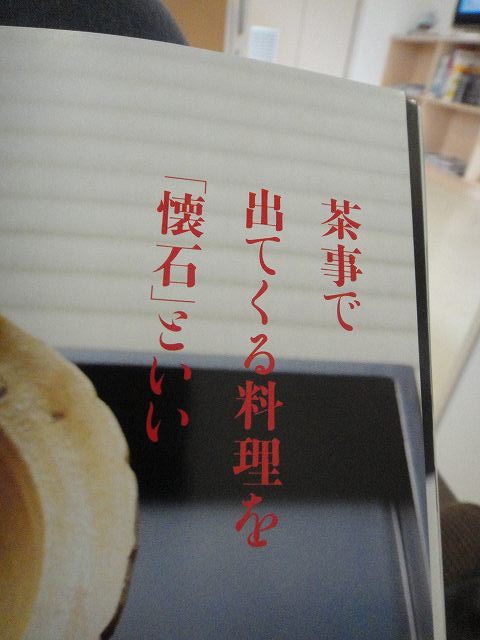 茶事で
出てくる料理を
「懐石」といい